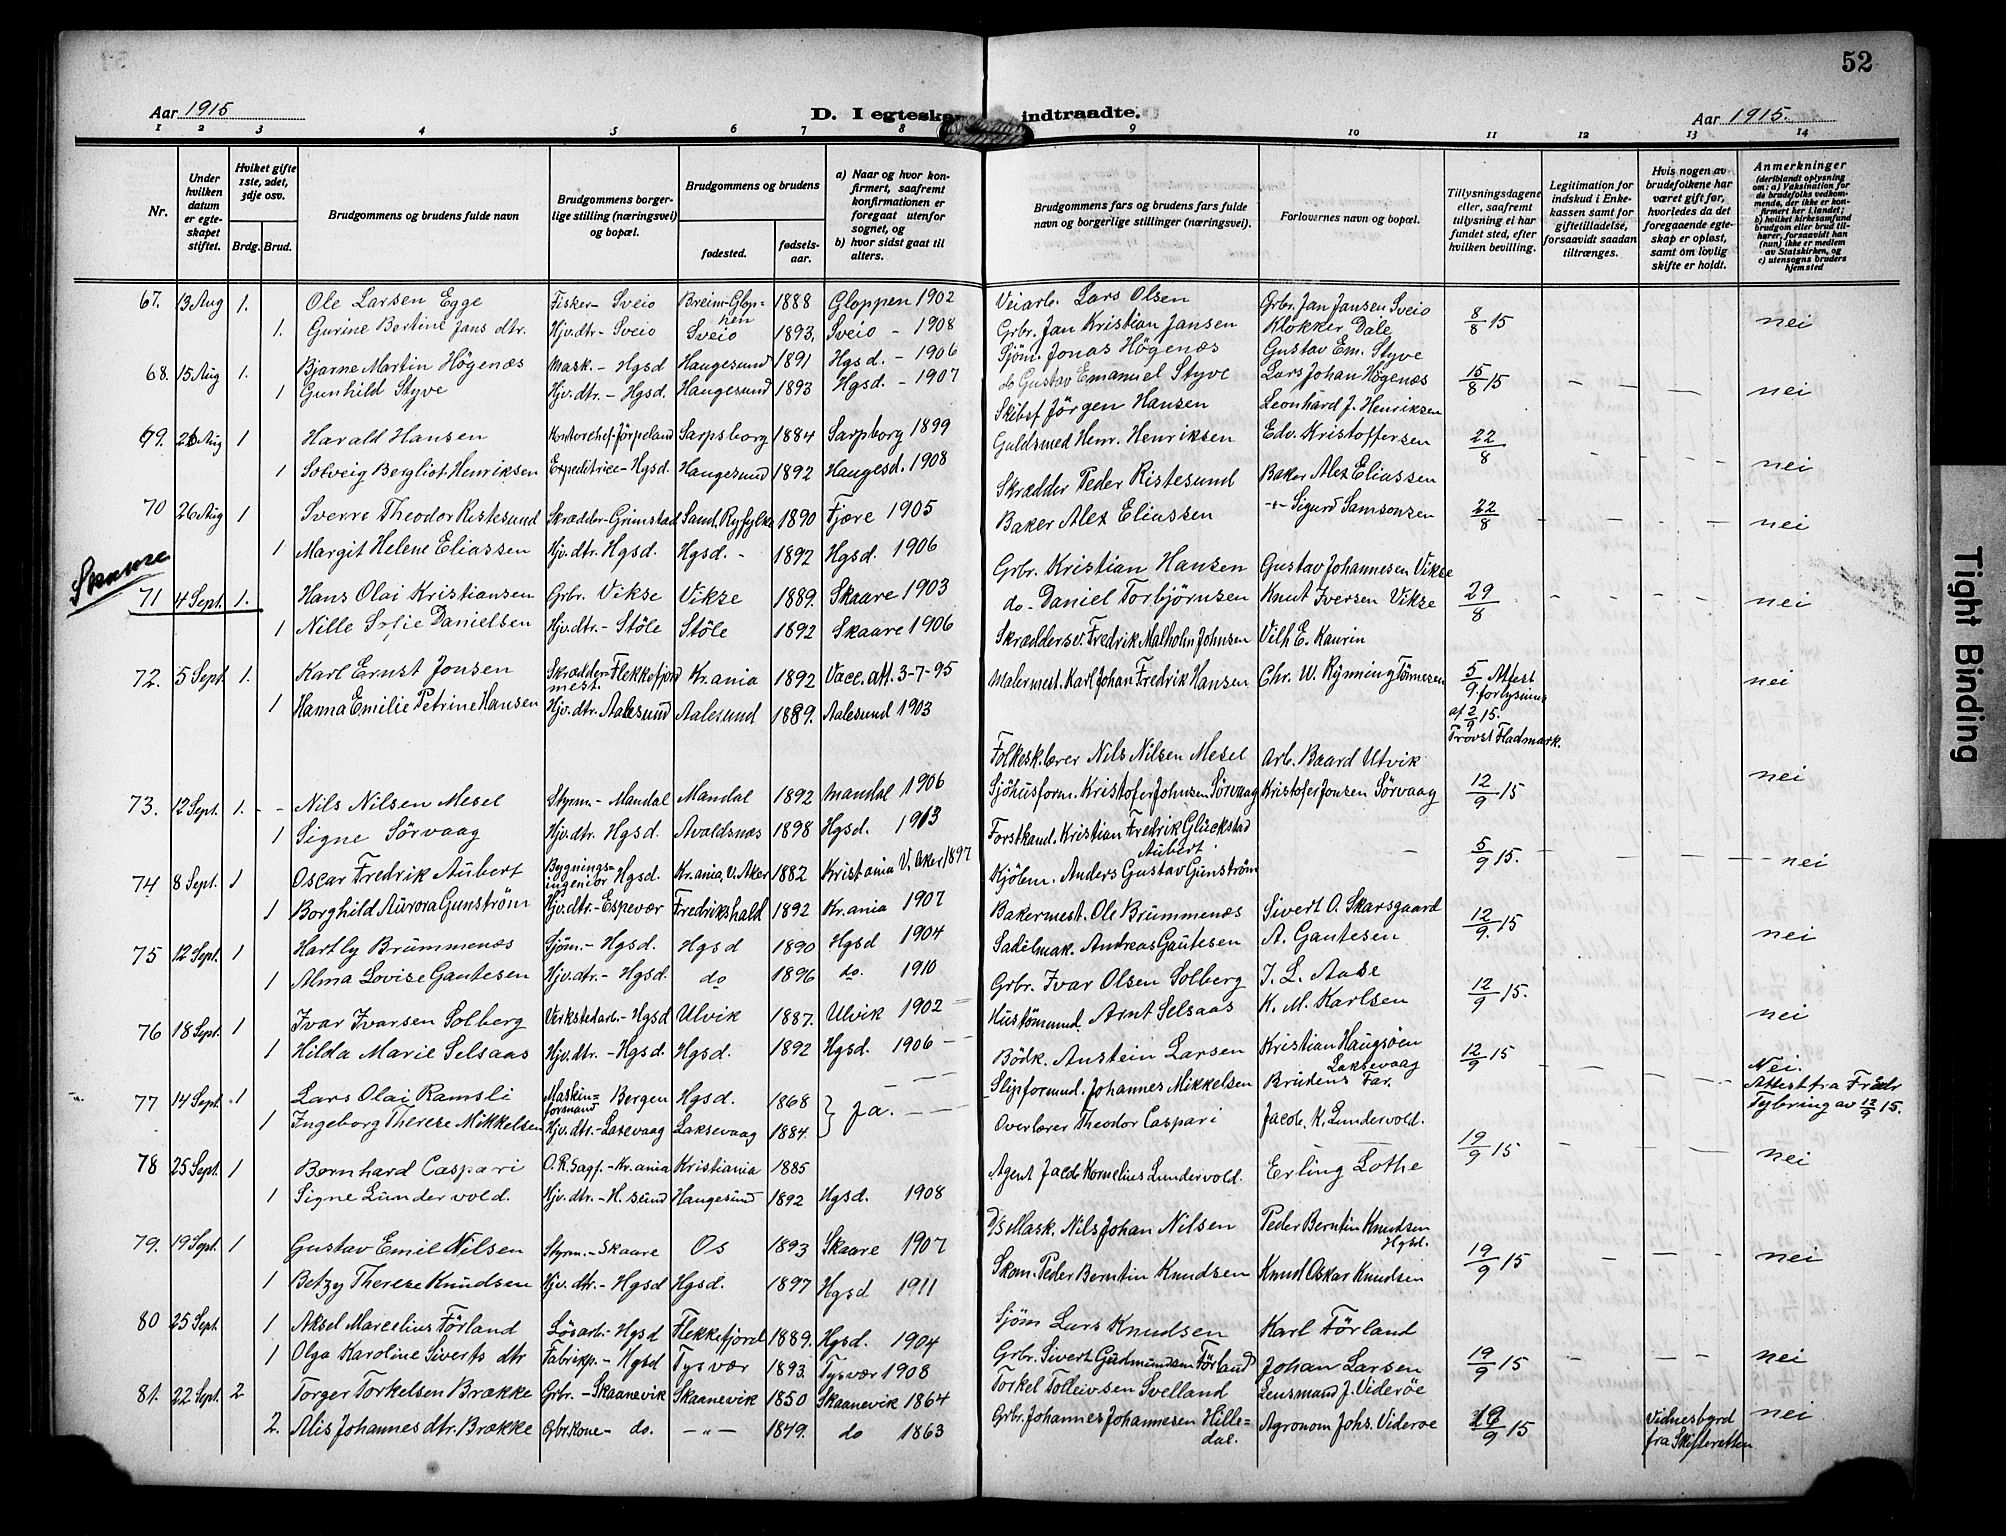 52
Aar 1915
D. I egteska
indtraadte.
Aar 1915.
1 2 3 4 5 6 7 8 9 10 11 12 13 14
Nr.
Under hvilken datum er egteskapet stiftet.
Hviket gifte 1ste, 2det, 3dje osv.
Brdg. Brud.
Brudgommens og brudens fulde navn
Brudgommens borgerlige stilling (næringsvei) og bopæl.
Brudgommens og brudens
fødested.
fødselsaar.
a) Naar og hvor konfirmert, saafremt konfirmationen er foregaat utenfor sognet, og
b) hvor sidst gaat til alters.
Brudgommens fars og brudens fars fulde navn og borgerlige stillinger (næringsvei).
Forlovernes navn og bopæl.
Tillysningsdagene eller, saafremt tillysning ei har fundet sted, efter hvilken bevilling.
Legitimation for indskud i Enkekassen samt for giftetilladelse, forsaavidt saadan tiltrænges.
Hvis nogen av brudefolkene har været gift før, hvorledes da det foregaaende egteskap er opløst, samt om lovlig skifte er holdt.
Anmerkninger
(deriblandt oplysning om: a) Vaksination for de brudefolks vedkommende, der ikke er konfirmert her i landet; b) hvilket kirkesamfund brudgom eller brud tilhører, forsaavidt han (hun) ikke er medlem av Statskirken, og c) utensogns bruders hjemsted
67. 13 Aug 1. Ole Larsen Egge Fisker - Sveio Breim-Gloppen 1888 Gloppen 1902 Veiarb. Lars Olsen Grbr. Jan Jansen Sveio 8/8 15 nei
1. Gurine Bertine Jans dtr. Hjv.dtr - Sveio Sveio 1893. Sveio - 1908 Grbr. Jan Kristian Jansen Klokker Dale
68. 15 Aug 1. Bjarne Martin Högenæs Mask. - Hgsd Haugesund 1891 Hgsd. - 1906 Sjöm. Jonas Högenæs Gustav Em. Styve 15/8 15 - - - nei
1 Gunhild Styve Hjv. dtr. - Hgsd. Haugesund 1893 Hgsd. - 1907 do Gustav Emanuel Styve Lars Johan Högenæs
69. 26 Aug 1 Harald Hansen Kontorchef-Jörpeland Sarpsborg 1884 Sarpborg 1899 Skibsf Jörgen Hansen Leonhard J. Henriksen 22/8 nei
1 Solveig Bergliot Henriksen Expeditrice - Hgsd. Haugesund 1892 Haugesd. 1908 Guldsmed Henr. Henriksen Edv. Kristoffersen
70 26 Aug 1 Sverre Theodor Ristesund Skrædder-Grimstad Sand, Ryfylke 1890 Fjære 1905 Skrædder Peder Ristesund Baker Alex Eliassen 22/8 nei
1 Margit Helene Eliassen Hjv. dtr. Hgsd. Hgsd. - 1892 Hgsd. 1906 Baker Alex Eliassen -"- Sigurd Samsonsen
Skaare
71 4 Sept. 1. Hans Olai Kristiansen Grbr. Vikse Vikse 1889. Skaare 1903 Grbr. Kristian Hansen Gustav Johannesen Vikse 29/8 nei
1 Nille Sofie Danielsen Hjv. dtr. - Stöle Stöle 1892 Skaare 1906 do - Daniel Torbjörnsen Knut Iversen Vikse
72. 5 Sept 1. Karl Ernst Jonsen Skræddermest. - Flekkefjord Kr.ania 1892 Vacc. att. 3-7-95 Skræddersv. Fredrik Malholm Johnsen Vilh E. Kaurin 5/9 Attest forlysning af 2/9 15. Provst Fladmark. nei
1 Hanna Emilie Petrine Hansen Hjv. dtr. Aalesund Aalesund 1889. Aalesund 1903 Malermest. Karl Johan Fredrik Hansen Chr. W. Rynning Tönnesen
73. 12 Sept. 1. - - Nils Nilsen Mesel Styrm. - Mandal Mandal 1892 Mandal 1906 Folkesk.lærer Nils Nilsen Mesel Arb. Baard Utvik 12/9 15 nei
1 Signe Sörvaag Hjv. dtr. Hgsd. Avaldsnæs 1898 Hgsd. 1913 Sjöhusform. Kristofer Johnsen Sörvaag Kristofer Jonsen Sörvaag
74 8 Sept. 1 Oscar Fredrik Aubert Bygningsingeniör Hgsd. Kr.ania, V. Aker 1882 Kristiania V. Aker 1897 Forstkand. Kristian Fredrik Glückstad Aubert - 5/9 15. nei
1 Borghild Aurora Gunström Hjv. dtr. - Espevær Fredrikshald 1892 Kr.ania 1907 Kjöbm. Anders Gustav Gunström
75 12 Sept. 1 Hartly Brummenæs Sjöm. - Hgsd. Hgsd 1890 Hgsd 1904 Bakermest. Ole Brummenæs Sivert O. Skarsgaard 12/9 15 nei
1 Alma Lovise Gautesen Hjv. dtr. - Hgsd. do 1896 do. 1910 Sadelmak. Andreas Gautesen A. Gautesen
76 18 Sept. 1 Ivar Ivarsen Solberg Verkstedarb. - Hgsd Ulvik 1887. Ulvik 1902 Grbr. Ivar Olsen Solberg J. L. Aase 12/9 15. nei
1 Hilda Marie Selsaas Hjv. dtr. - Hgsd. Hgsd. 1892 Hgsd. 1906 - Hustömmd. Arnt Selsaas K. M. Karlsen
77 14 Sept. 1 Lars Olai Ramsli Maskinformand Bergen Hgsd. 1868 } ja. Bödk. Austein Larsen Kristian Haugsöen Laksevaag 12/9 15 Nei. Attest fra Fredr Tybring av 12/9 15.
1 Ingeborg Therese Mikkelsen Hjv. dtr. - Laxevaag Laksevaag 1884. Slipformd. Johannes Mikkelsen Brudens Far.
78 25 Sept. 1 Bernhard Caspari O.R.Sagf. - Kr.ania Kristiania 1885 Overlærer Theodor Caspari Jacob. K. Lundervold. 19/9 15 nei
1 Signe Lundervold. Hjv. dtr. - H.sund Haugesund 1892 Hgsd. 1908 Agent Jacob Kornelius Lundervold. Erling Lothe
79. 19 Sept. 1 Gustav Emil Nilsen Styrm. - Skaare Os 1893 Skaare 1907 D/s Mask. Nils Johan Nilsen Peder Berntin Knutsen Hgsd. 19/9 15 nei
1 Betzy Therese Knudsen Hjv. dtr. - Hgsd Hgsd. 1897 Hgsd 1911 Skom. Peder Berntin Knudsen Knud Oskar Knudsen
80 25 Sept. 1 Aksel Marcelius Förland Lösarb. - Hgsd Flekkefjord 1889. Hgsd. 1904 Sjöm Lars Knudsen Karl Förland 19/9 15 nei
1 Olga Karoline Siverts dtr Fabrikp. - Hgsd Tysvær 1893. Tysvær 1908 Grbr. Sivert Gudmundsen Förland Johan Larsen
81. 22 Sept. 2 Torger Torkelsen Brække Grbr. - Skaanevik Skaanevik 1850 Skaanevik 1864 Torkel Tolleivsen Svelland Lensmand J. Videröe 19/9 15 Vidnesbyrd fra Skifteretten nei
2. Alis Johannes dtr. Brække Gbr.kone - do. -"- 1849. do 1863 Grbr. Johannes Johannesen Hilledal. Agronom Johs. Videröe
Tight Binding